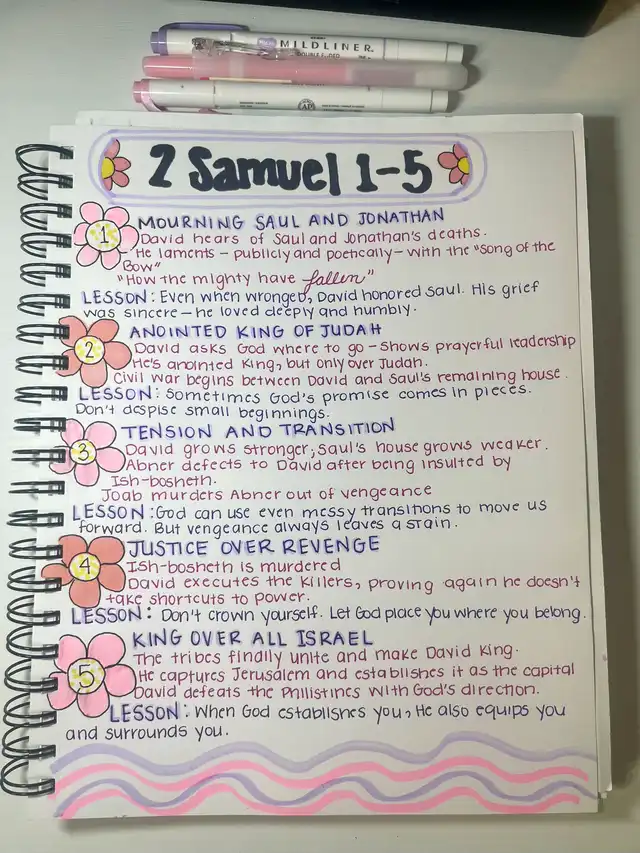 MILDLINER.
DOUBLE-ENDED
2 Samuel 1-5
1
MOURNING SAUL AND JONATHAN
David hears of Saul and Jonathan's deaths.
- He laments - publicly and poetically - with the "Song of the
Bow"
"How the mighty have fallen"
LESSON: Even when wronged, David honored Saul. His grief
was sincere - he loved deeply and humbly.
2
ANOINTED KING OF JUDAH
David asks God where to go - shows prayerful leadership
He's anointed King, but only over Judah.
Civil war begins between David and Saul's remaining house.
LESSON: Sometimes God's promise comes in pieces.
Don't despise small beginnings.
3
TENSION AND TRANSITION
David grows stronger; Saul's house grows weaker.
Abner defects to David after being insulted by
Ish-bosheth.
Joab murders Abner out of vengeance
LESSON: God can use even messy transitions to move us
forward. But vengeance always leaves a stain.
4
JUSTICE OVER REVENGE
Ish-bosheth is murdered
David executes the killers, proving again he doesn't
take shortcuts to power.
LESSON: Don't crown yourself. Let God place you where you belong.
5
KING OVER ALL ISRAEL
The tribes finally unite and make David King.
He captures Jerusalem and establishes it as the capital
David defeats the Philistines with God's direction.
LESSON: When God establishes you, He also equips you
and surrounds you.